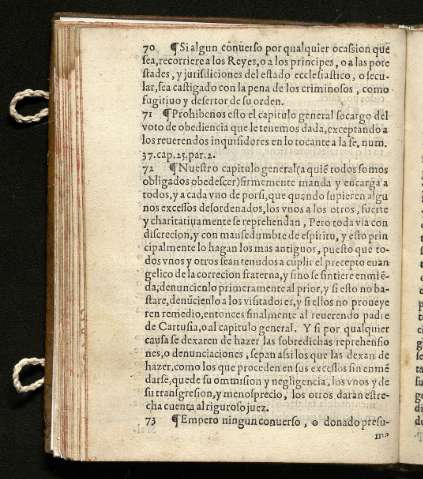 70 ¶Si algun conuerso por qualquier ocassion que
sea, recorriere a los Reyes, o a los principes, o a las pote
stades, y jurisdiciones del estado ecclesiastico, o secu-
lar, sea castigado con la pena de los criminosos, como
fugitiuo y desertor de su orden.
71 ¶Prohibenos esto el capitulo general so cargo del
voto de obediencia que le tenemos dada, exceptando a
los reuerendos inquisidores en lo tocante a la fe, num.
37.cap.25.par.2.
72 ¶Nuestro capitulo general(a quiē todos somos
obligados obedescer)firmemente manda y encarga a
todos, y a cada vno de por si, que quando supieren algu
nos excessos desordenados, los vnos a los otros, fuerte
y charitatiuamente se reprehendan, Pero toda via con
discrecion, y con mansedumbre de espiritu, y esto prin
cipalmente lo hagan los mas antiguos, puesto que to-
dos vnos y otros sean tenudos a cūplir el precepto euan
gelico de la correcion fraterna, y si no se sintiere enmiē-
da, denuncienlo primeramente al prior, y si esto no ba-
stare, denūcienlo a los visitadores, y si ellos no proueye
ren remedio, entonces finalmente al reuerendo padre
de Cartusia, o al capitulo general. Y si por qualquier
causa se dexaren de hazer las sobredichas reprehensio
nes, o denunciaciones, sepan assi los que las dexan de
hazer, como los que proceden en sus excessos sin enmē
darse, que de su omission y negligencia, los vnos y de
su transgresion, y menosprecio, los otros daran estre-
cha cuenta al riguroso juez.
73 ¶Empero ningun conuerso, o donado presu-